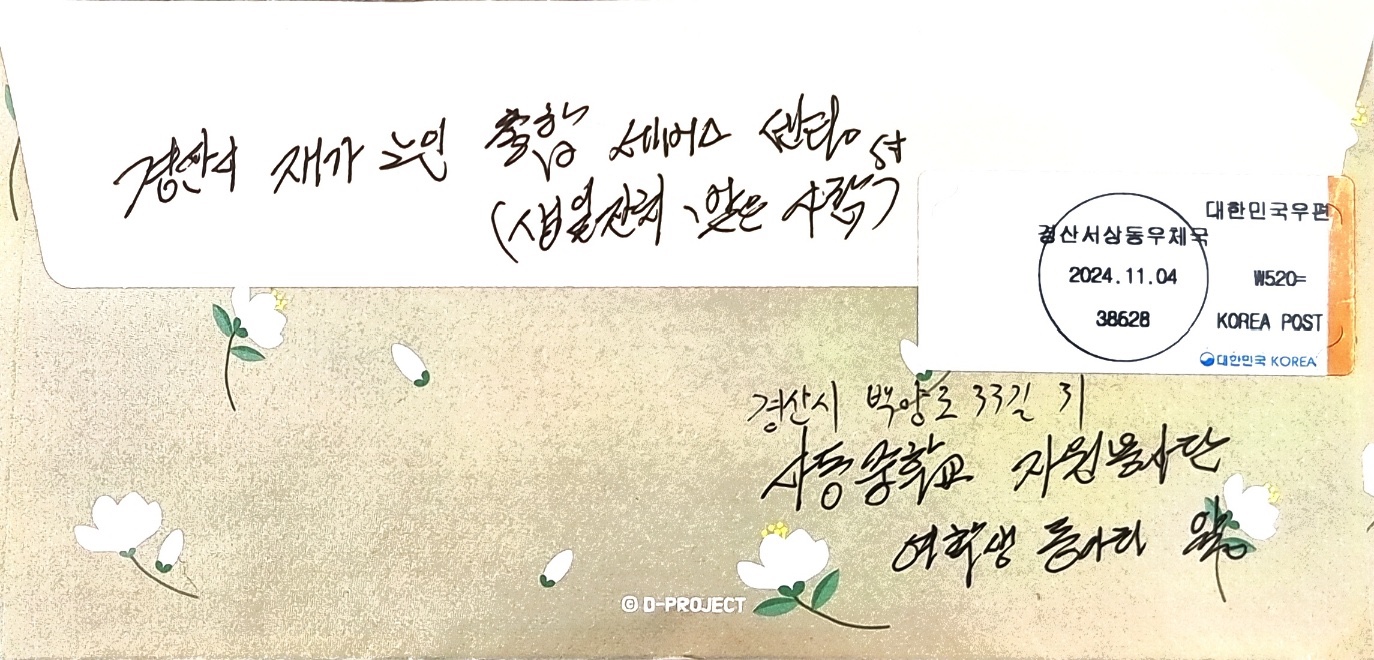 경산시 재가 노인 종합 서비스 센터
(생일잔치 맞은 사람)
대한민국우편
경산서상동우체국
2024.11.04
₩520=
38628
KOREA POST
대한민국 KOREA
경산시 백양로 33길 31
사동중학교 자원봉사단
여학생 동아리
© D-PROJECT